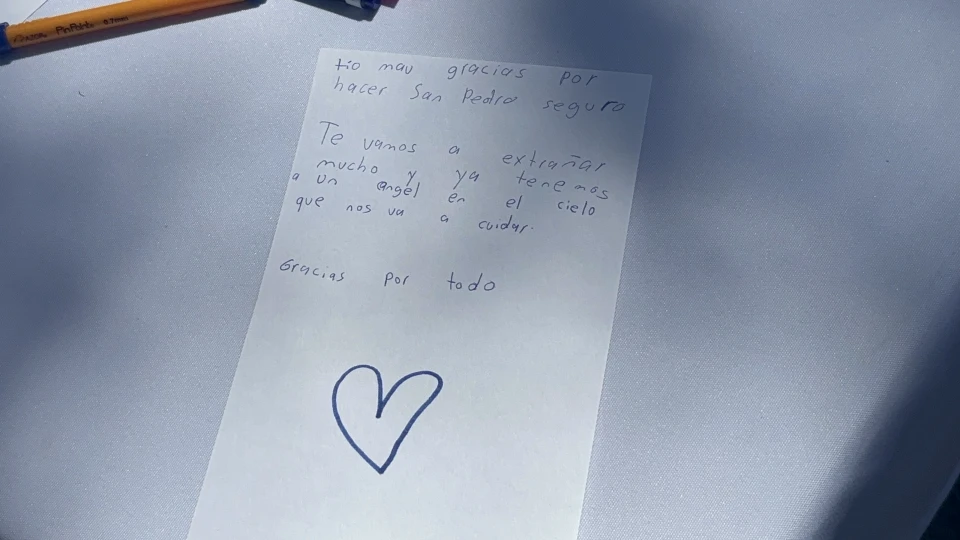 PinPoint 0.7mm
tio mau gracias por
hacer San Pedro seguro
Te vamos a extrañar
mucho y ya tenemos
a un angel en el cielo
que nos va a cuidar.
Gracias por todo